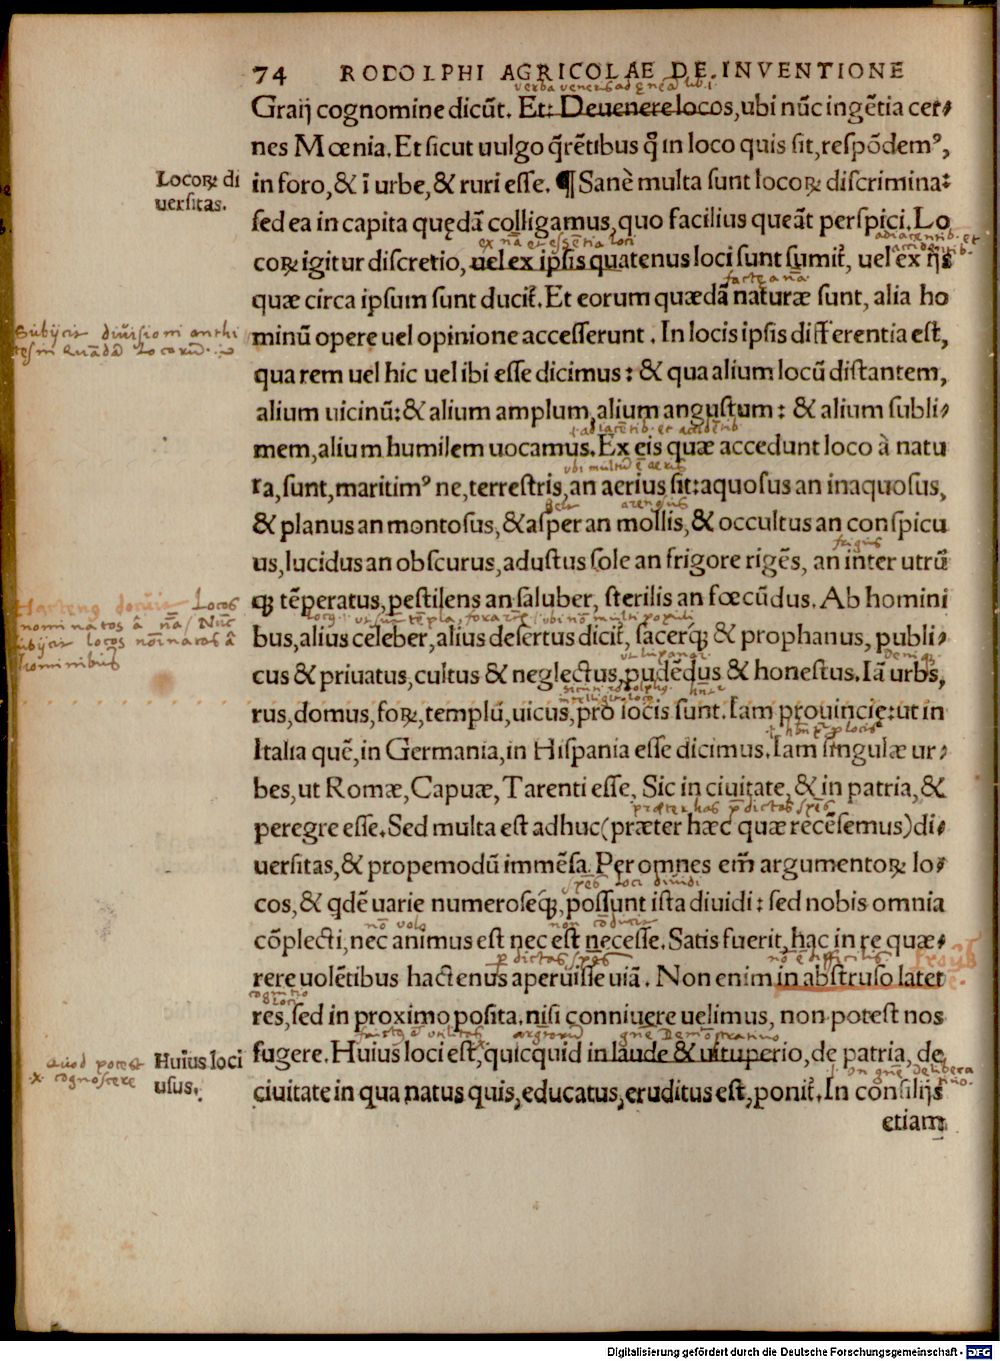 74 RODOLPHI AGRICOLAE DE INVENTIONE
verba veneris ad
Graij cognomine dicūt. Et: Deuenere locos, ubi nūc ingētia cer-
nes Mœnia. Et sicut uulgo q̄rētibus q̄ in loco quis sit, respōdemꝰ,
Locoꝝ di
uersitas.
in foro, & ī urbe, & ruri esse. ¶ Sanè multa sunt locoꝝ discrimina:
sed ea in capita quędā colligamus, quo facilius queāt perspici. Lo
ex nā et essētia loci
coꝝ igitur discretio, uel ex ipsis quatenus loci sunt sumit̃, uel ex ijs
quæ circa ipsum sunt ducit̃. Et eorum quædā naturæ sunt, alia ho
Subijcit diuisioni anthi
tesin quādā locorū
minū opere uel opinione accesserunt. In locis ipsis differentia est,
qua rem uel hic uel ibi esse dicimus: & qua alium locū distantem,
alium uicinū: & alium amplum, alium angustum: & alium subli-
adiacētib. et accidētib
mem, alium humilem uocamus. Ex eis quæ accedunt loco à natu
ra, sunt, maritimꝰ ne, terrestris, an aerius sit: aquosus an inaquosus,
& planus an montosus, & asper an mollis, & occultus an conspicu
frigus
us, lucidus an obscurus, adustus sole an frigore rigēs, an inter utrū
Hactenq docuit Locos
nominatos à nā/ Nūc
subijcit locos nōinatos à
hominibus
q̃ tēperatus, pestilens an saluber, sterilis an fœcūdus. Ab homini
bus, alius celeber, alius desertus dicit̃, sacerq̃ & prophanus, publi
cus & priuatus, cultus & neglectus, pudēdus & honestus. Iā urbs,
rus, domus, foꝝ, templū, uicus, pro locis sunt. Iam prouincię: ut in
Italia quē, in Germania, in Hispania esse dicimus. Iam singulæ ur-
bes, ut Romæ, Capuæ, Tarenti esse, Sic in ciuitate, & in patria, &
præter has p̄dictas spēs
peregre esse. Sed multa est adhuc (præter hæc quæ recēsemus) di-
uersitas, & propemodū immēsa. Per omnes em̄ argumentoꝝ lo-
spēs loci diuidi
cos, & qdē uarie numeroseq̃, possunt ista diuidi: sed nobis omnia
nō volo non cōducit
cōplecti, nec animus est nec est necesse. Satis fuerit, hac in re quæ-
p̄dictas spēs nō ē difficilis
rere uolētibus hactenus aperuisse uiā. Non enim in abstruso latet
cognitio
loci
res, sed in proximo posita, nisi conniuere uelimus, non potest nos
Quod potest
cognoscere
Huius loci
usus.
fugere. Huius loci est, quicquid in laude & uituperio, de patria, de
ciuitate in qua natus quis, educatus, eruditus est, ponit̃. In consilijs
etiam
Digitalisierung gefördert durch die Deutsche Forschungsgemeinschaft - DFG